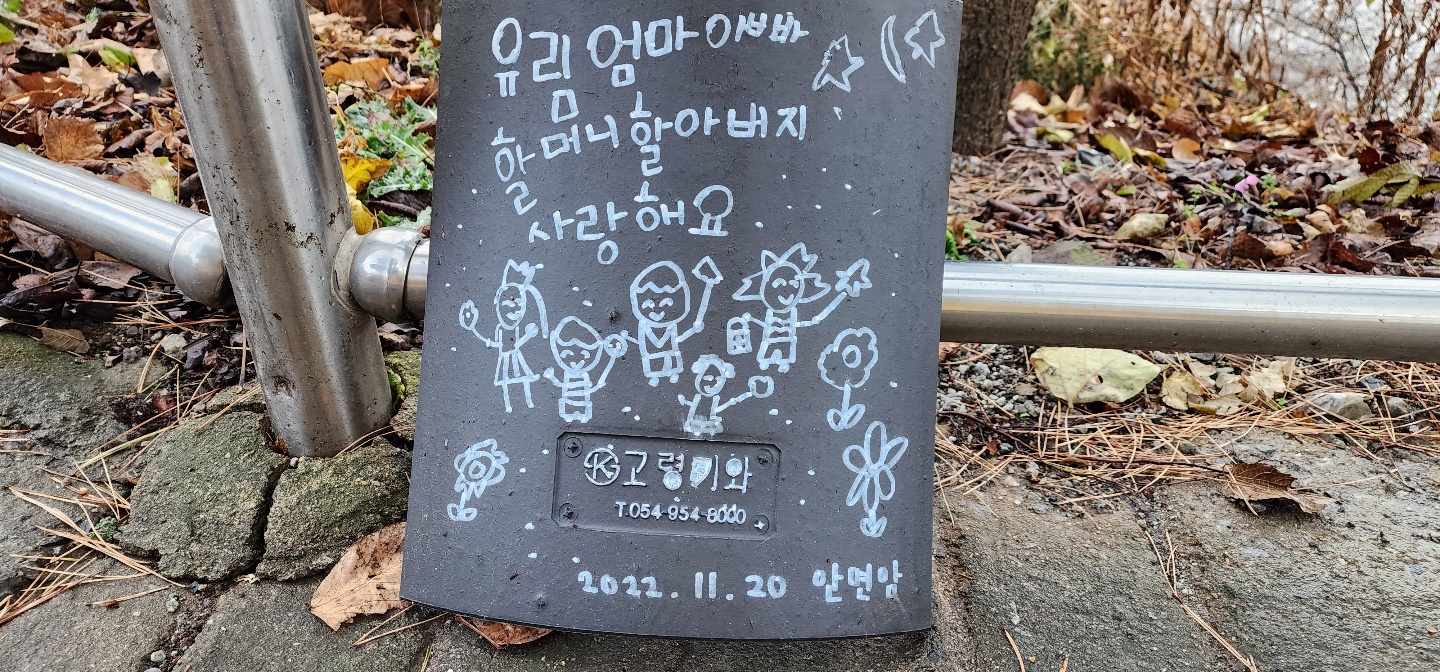 유림 엄마 아빠
할머니 할아버지
사랑해요
K 고령기와
T.054-954-8000
2022. 11. 20 안면암